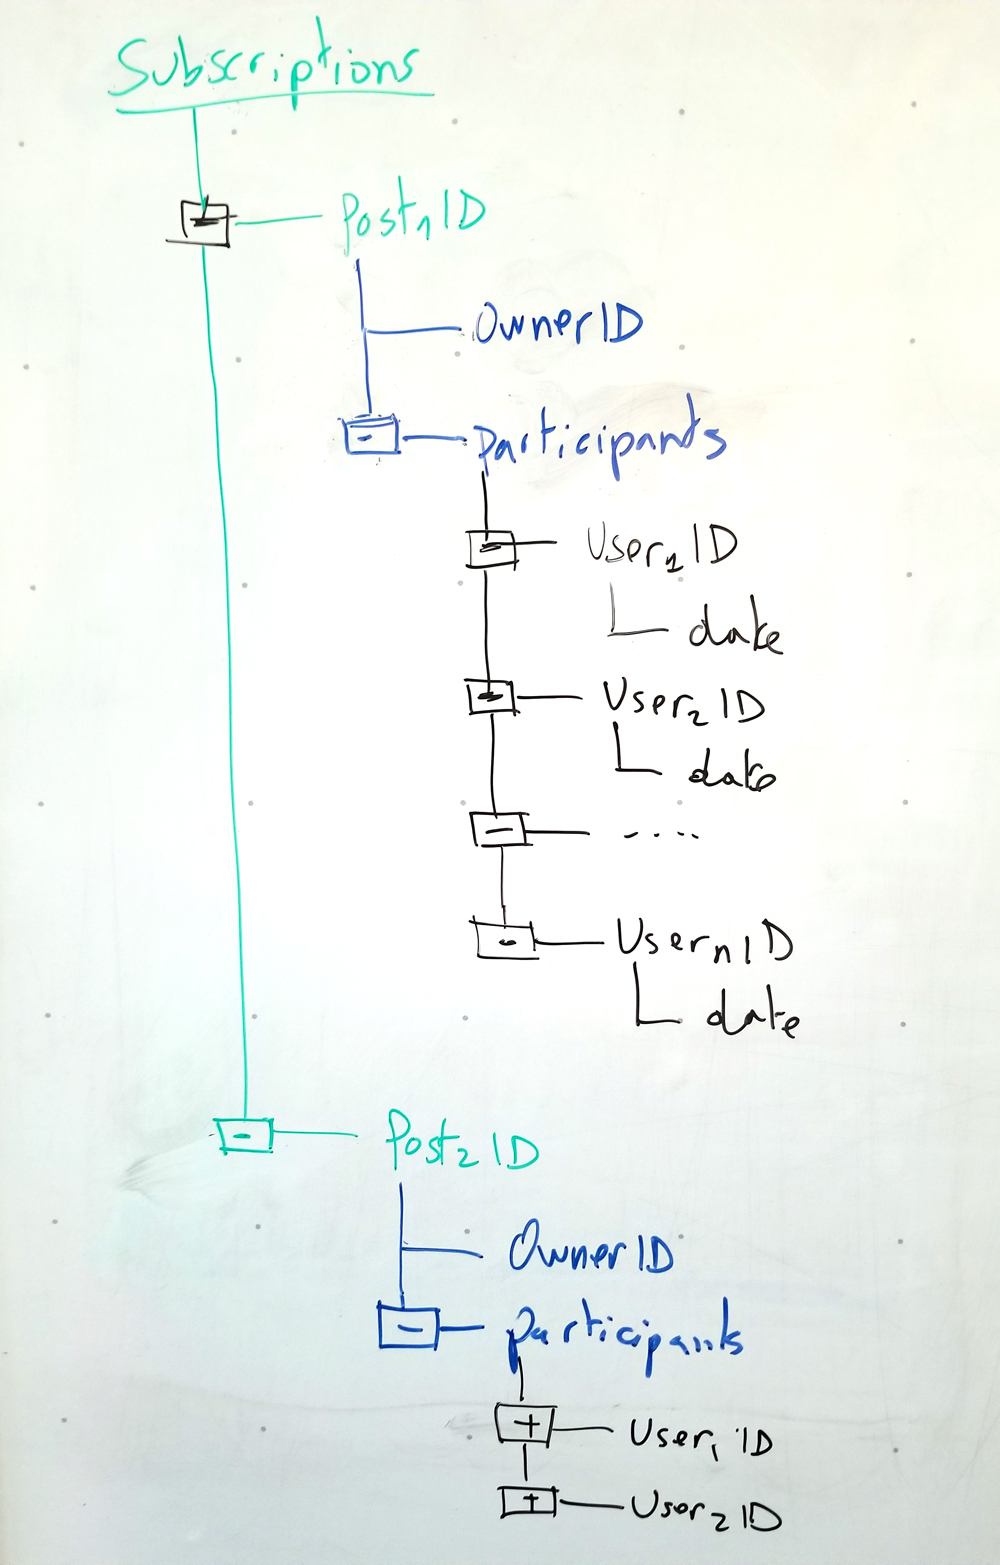 Subscriptions
Post₁ID
OwnerID
Participants
User₁ID
date
User₂ID
date
- . . . .
UserₙID
date
Post₂ID
OwnerID
Participants
User₁ID
User₂ID